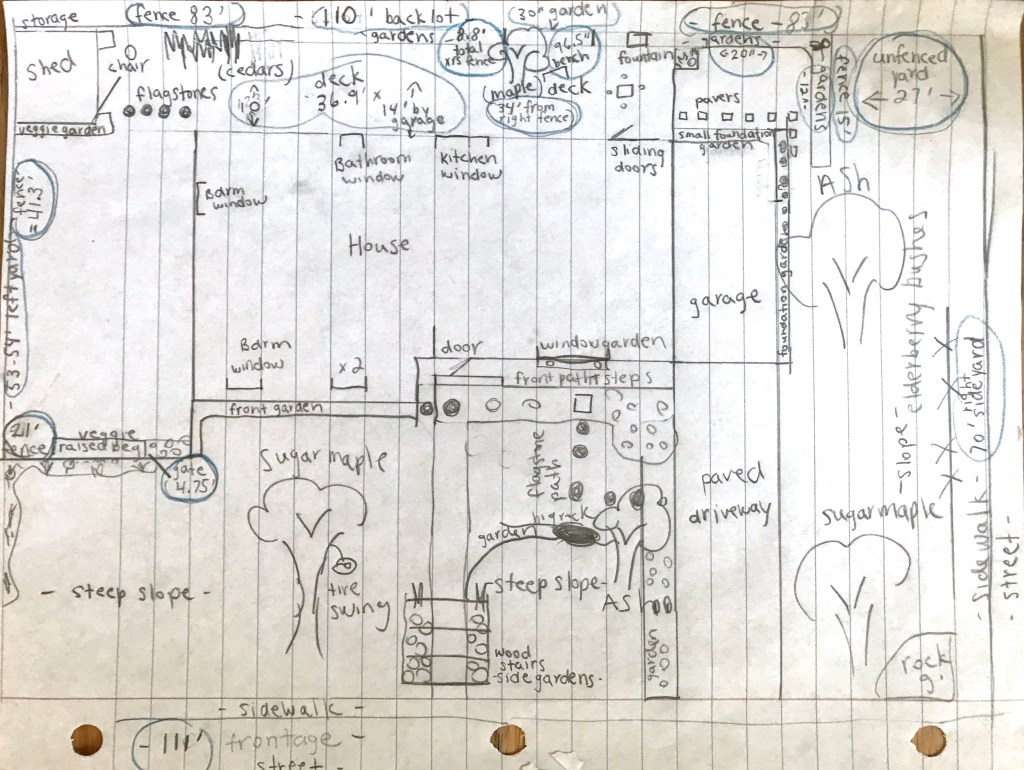 storage
fence 83'
- 110' back lot
gardens
8x8' total xrs fence
30" garden
- fence - 83'
gardens
<20"→
shed
chair
(cedars)
deck
36.9' x
14' by garage
flagstones
veggie garden
(maple)
96.5" bench
deck
34' from right fence
fountain
sliding doors
pavers
small foundation garden
gardens
-12'-
fence 15'
unfenced yard
27'
Bathroom window
Kitchen window
Barm window
House
fence = 41.3'
- 53-54' left yard -
garage
foundation garden
Ash
- slope - elderberry bushes
Barm window
x2
door
window garden
front path steps
front garden
21.1' fence
veggie raised bed
gate 4.75'
Sugar maple
tire swing
flagstone path
big rock
garden
- steep slope -
steep slope-
AS
wood stairs
-side gardens-
garden
paved driveway
sugar maple
rock g.
- sidewalk - 70' right side yard
- street -
- sidewalk -
- 111' frontage
street -